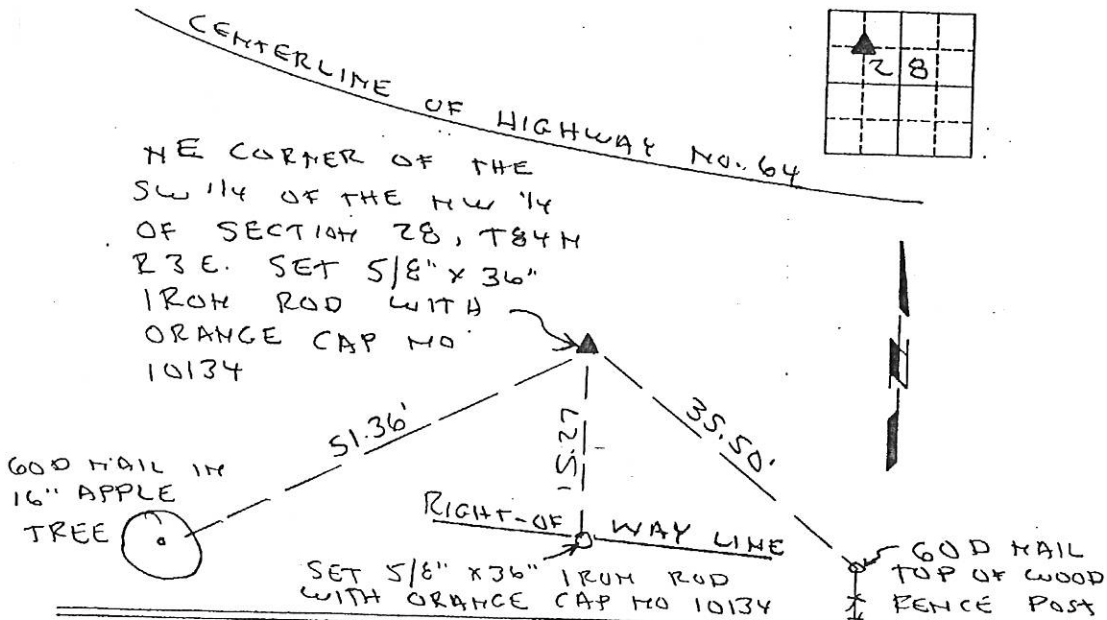 CENTERLINE OF HIGHWAY NO. 64
28
NE CORNER OF THE
SW 1/4 OF THE NW 1/4
OF SECTION 28, T84N
R3E. SET 5/8" X 36"
IRON ROD WITH
ORANGE CAP NO
10134
N
51.36'
15.27
35.50'
60D NAIL IN
16" APPLE
TREE
RIGHT-OF WAY LINE
SET 5/8" X 36" IRON ROD
WITH ORANGE CAP NO 10134
60D NAIL
TOP OF WOOD
FENCE POST